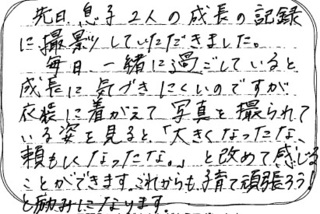 先日、息子2人の成長の記録
に撮影していただきました。
毎日、一緒に過ごしていると
成長に気づきにくいのですが
衣装に着がえて写真を撮られて
いる姿を見ると、「大きくなったな、
頼もしくなったな。」と改めて感じる
ことができます。これからも、子育て頑張ろう！
と励みになります。